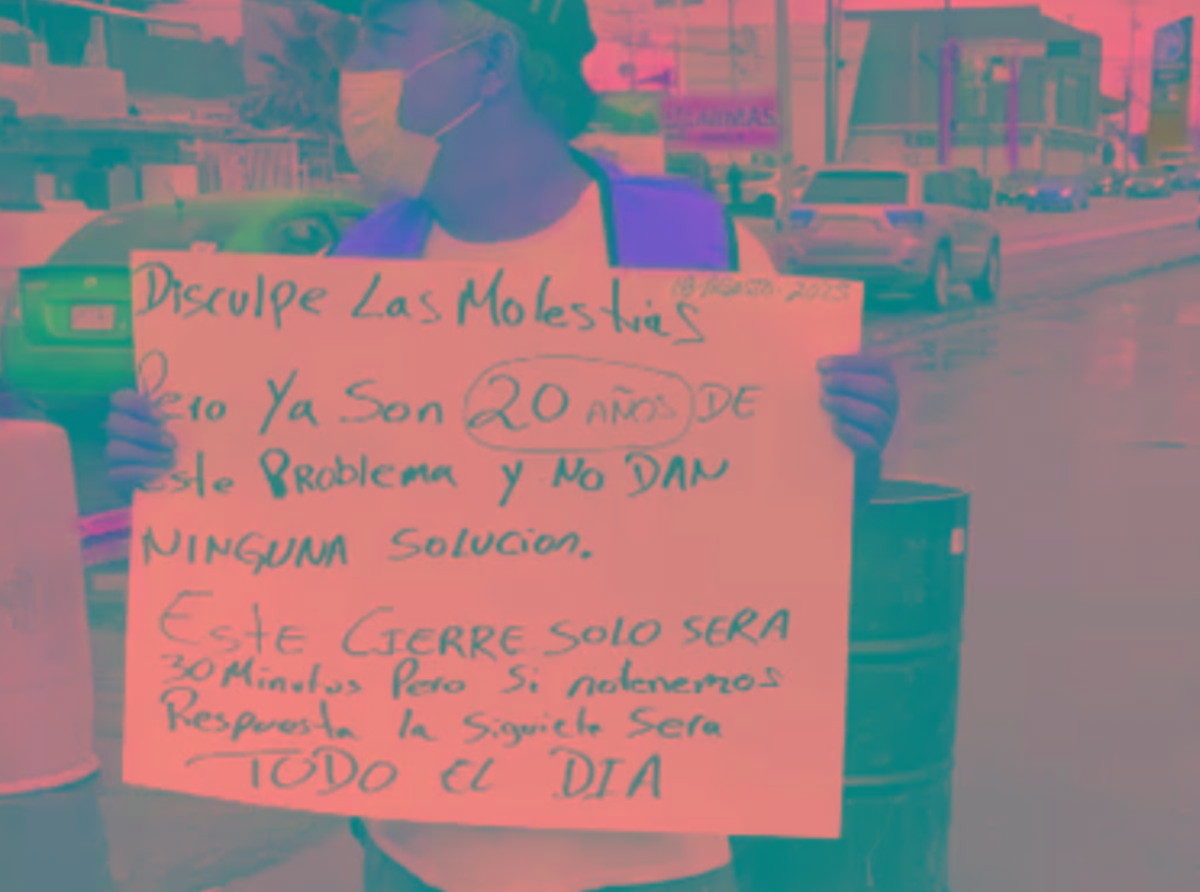 Disculpe Las Molestias
18 AGOSTO 2023
Pero Ya Son 20 AÑOS DE
Este PRoblema y NO DAN
NINGUNA SOLUCION.
EstE CIERRE SOLO SERA
30 Minutos Pero Si notenemos
Respuesta la Siguiete Sera
TODO EL DIA